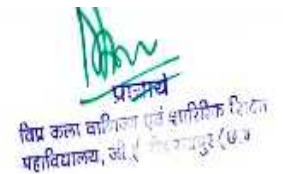 प्राचार्य
विप्र कला वाणिज्य एवं शारीरिक शिक्षा
महाविद्यालय, जी.ई. रोड रायपुर (छ.ग